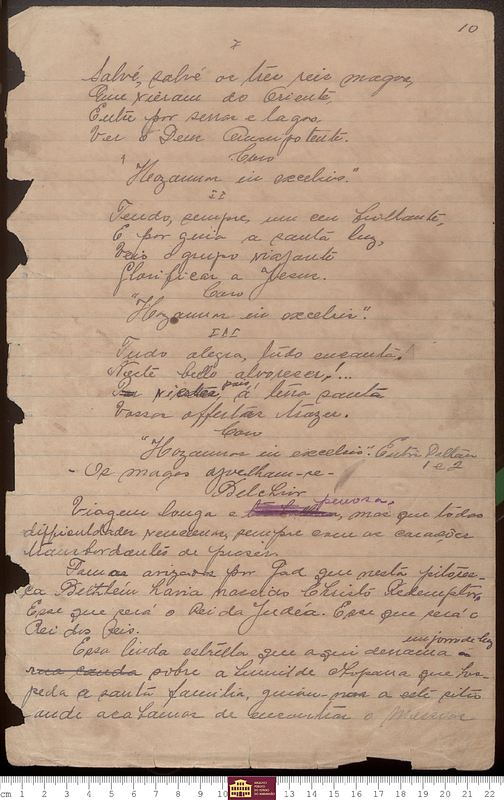 10
7
Salvé, salvé os tres reis magos,
Que vieram do Oriente,
Entre por serras e lagos
Ver o Deus Omnipotente.
Coro
"Hozannas in excelsis."
II
Tendo, sempre, um ceu brilhante,
E por guia a santa luz,
Veio o grupo viajante
Glorificar a Jesus.
Coro
"Hozannas in excelsis".
III
Tudo alegra, tudo encanta!
Neste bello alvorecer!...
pois, á terra santa
Vossas offertas trazer.
Coro
"Hozannas in excelsis". Entra Balthar
1 e 2
- Os magos ajoelham-se -
Belchior
Viagem longa e penosa, mas que todas
difficuldades vencemos, sempre com os corações
transbordantes de prazer.
Fomos avizados por Gad que nesta pitores-
ca Bethlem havia nascido Christo Redemptor,
Esse que será o Rei da Judéa. Esse que será o
Rei dos Reis.
um jorro de luz
Essa linda estrella que aqui derrama a
sua cauda sobre a humilde choupana que hos-
peda a santa familia, guiou-nos a este sitio
onde acabamos de encontrar o Messias
cm 1 2 3 4 5 6 7 8 9 10 13 14 15 16 17 18 19 20 21 22
ARQUIVO PÚBLICO DO ESTADO DO MARANHÃO